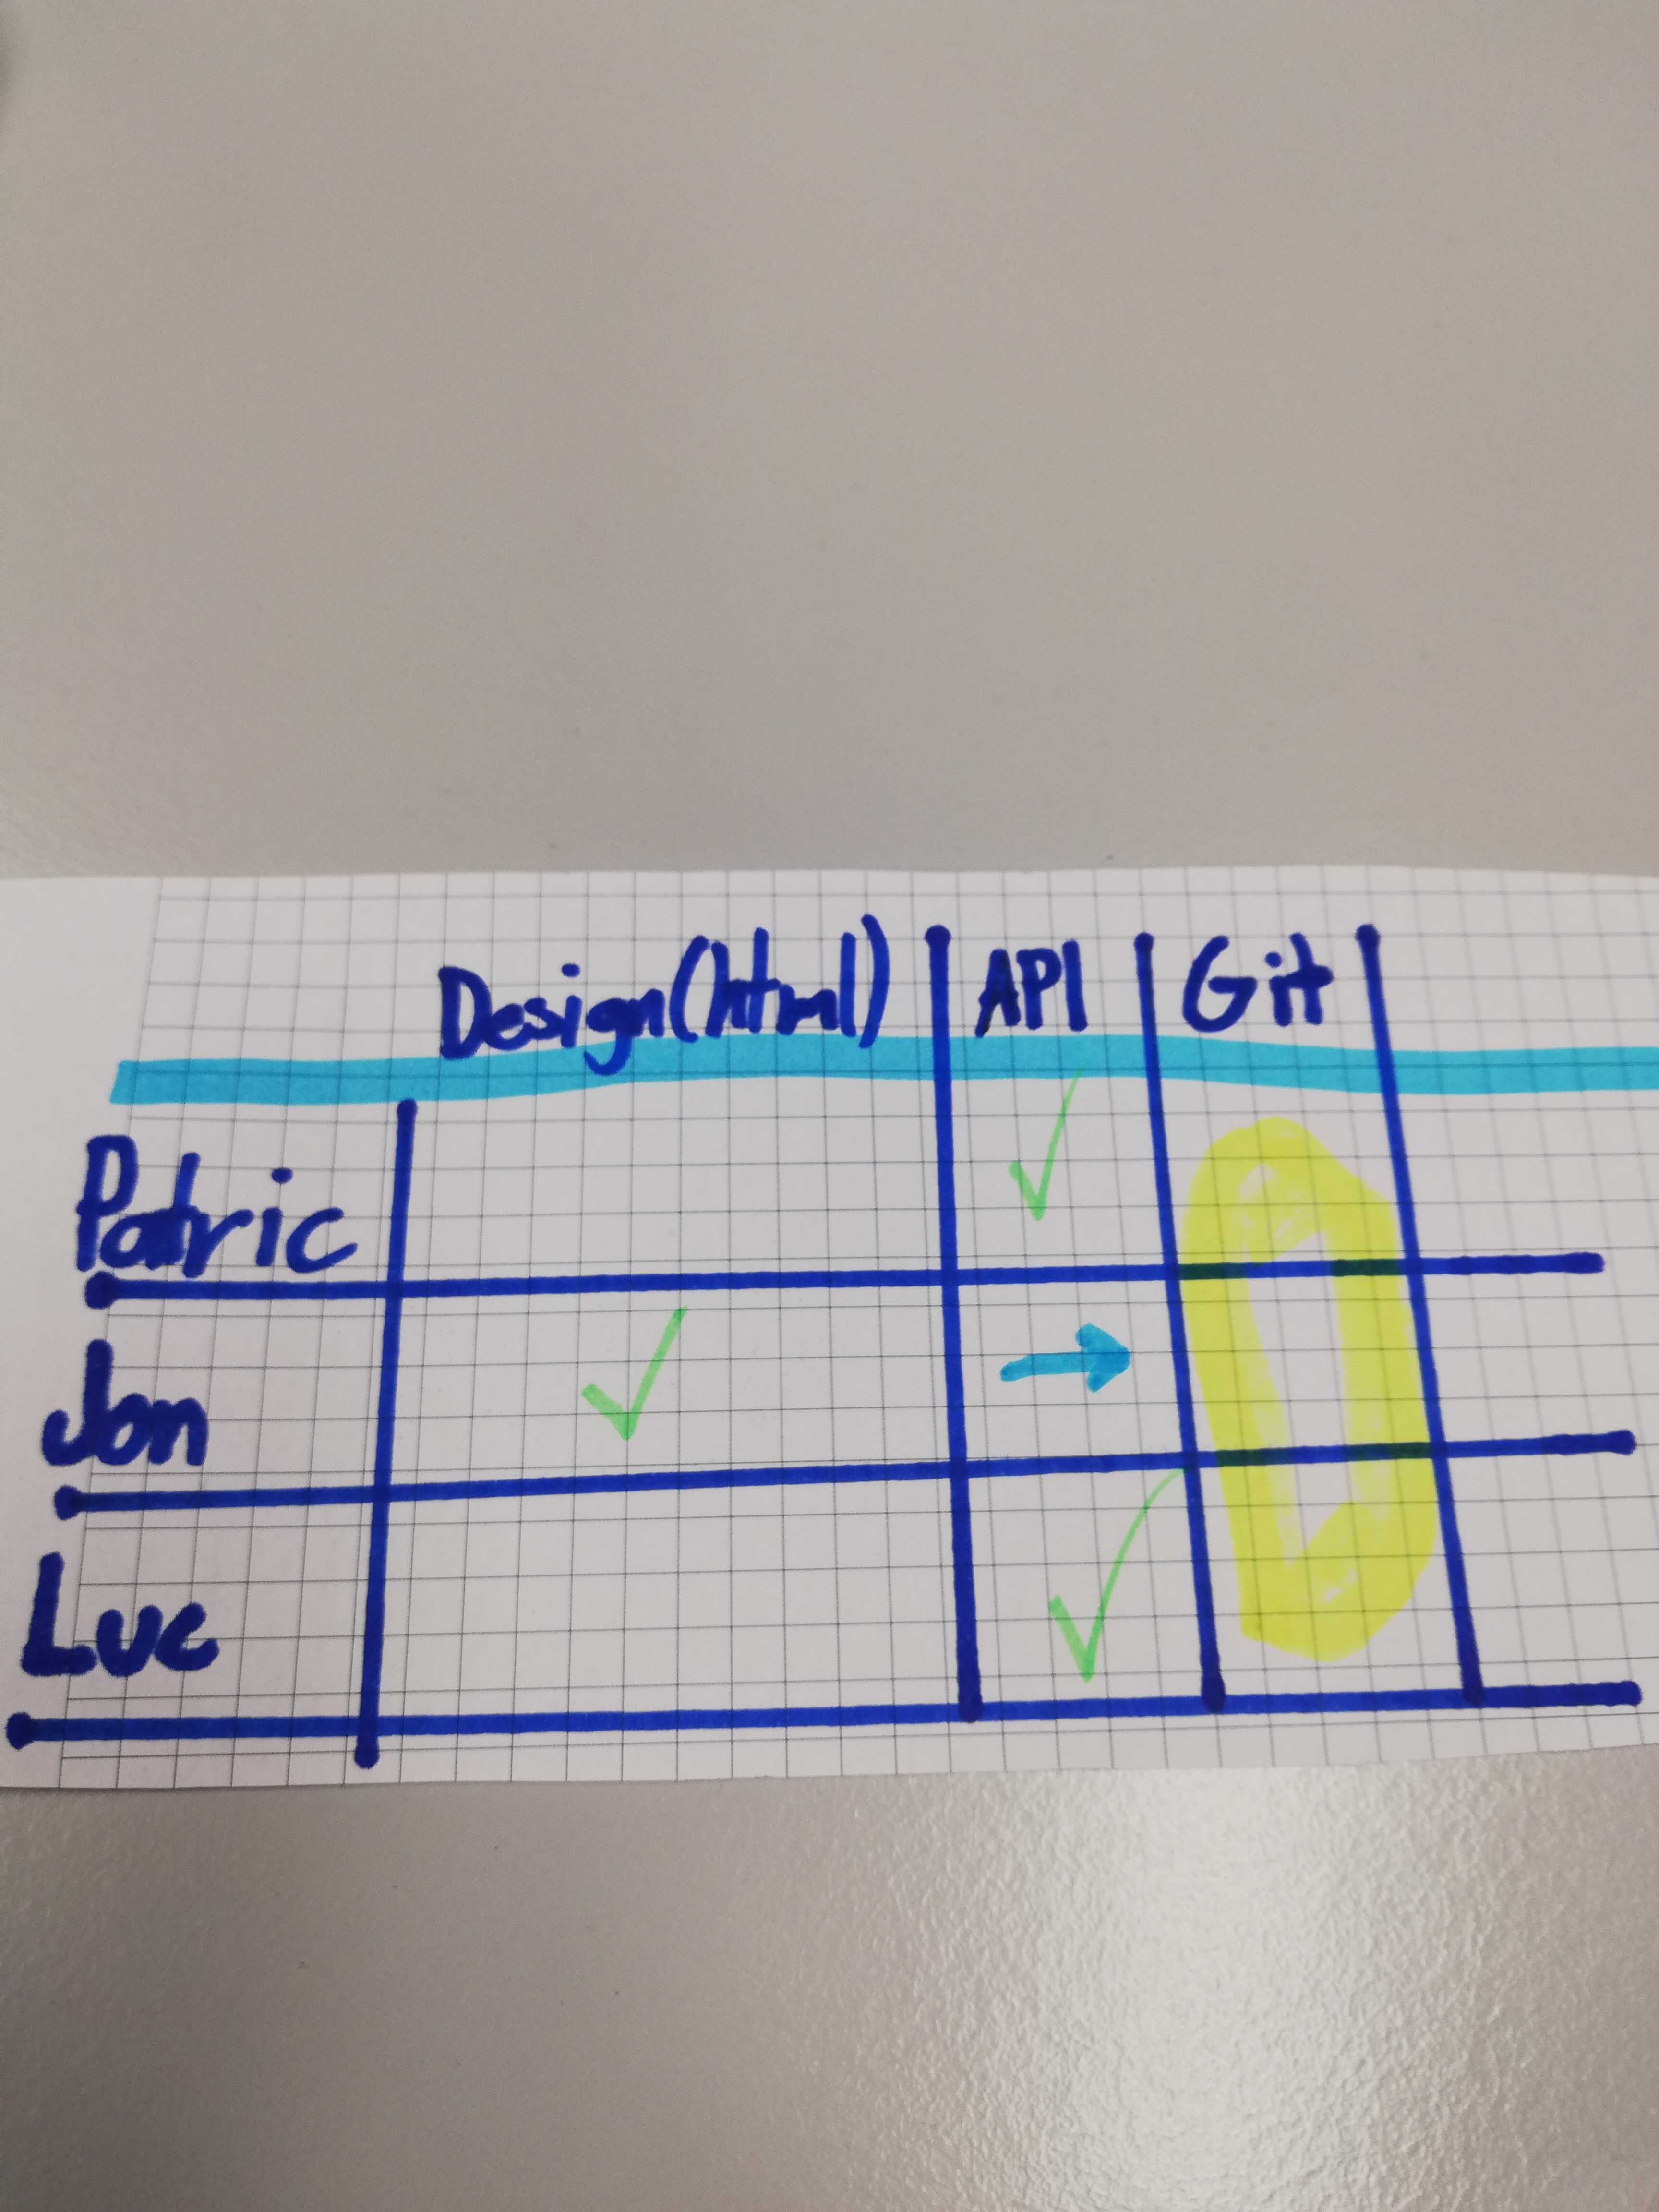 Design(html) | API | Git
Patric
Jon
Luc